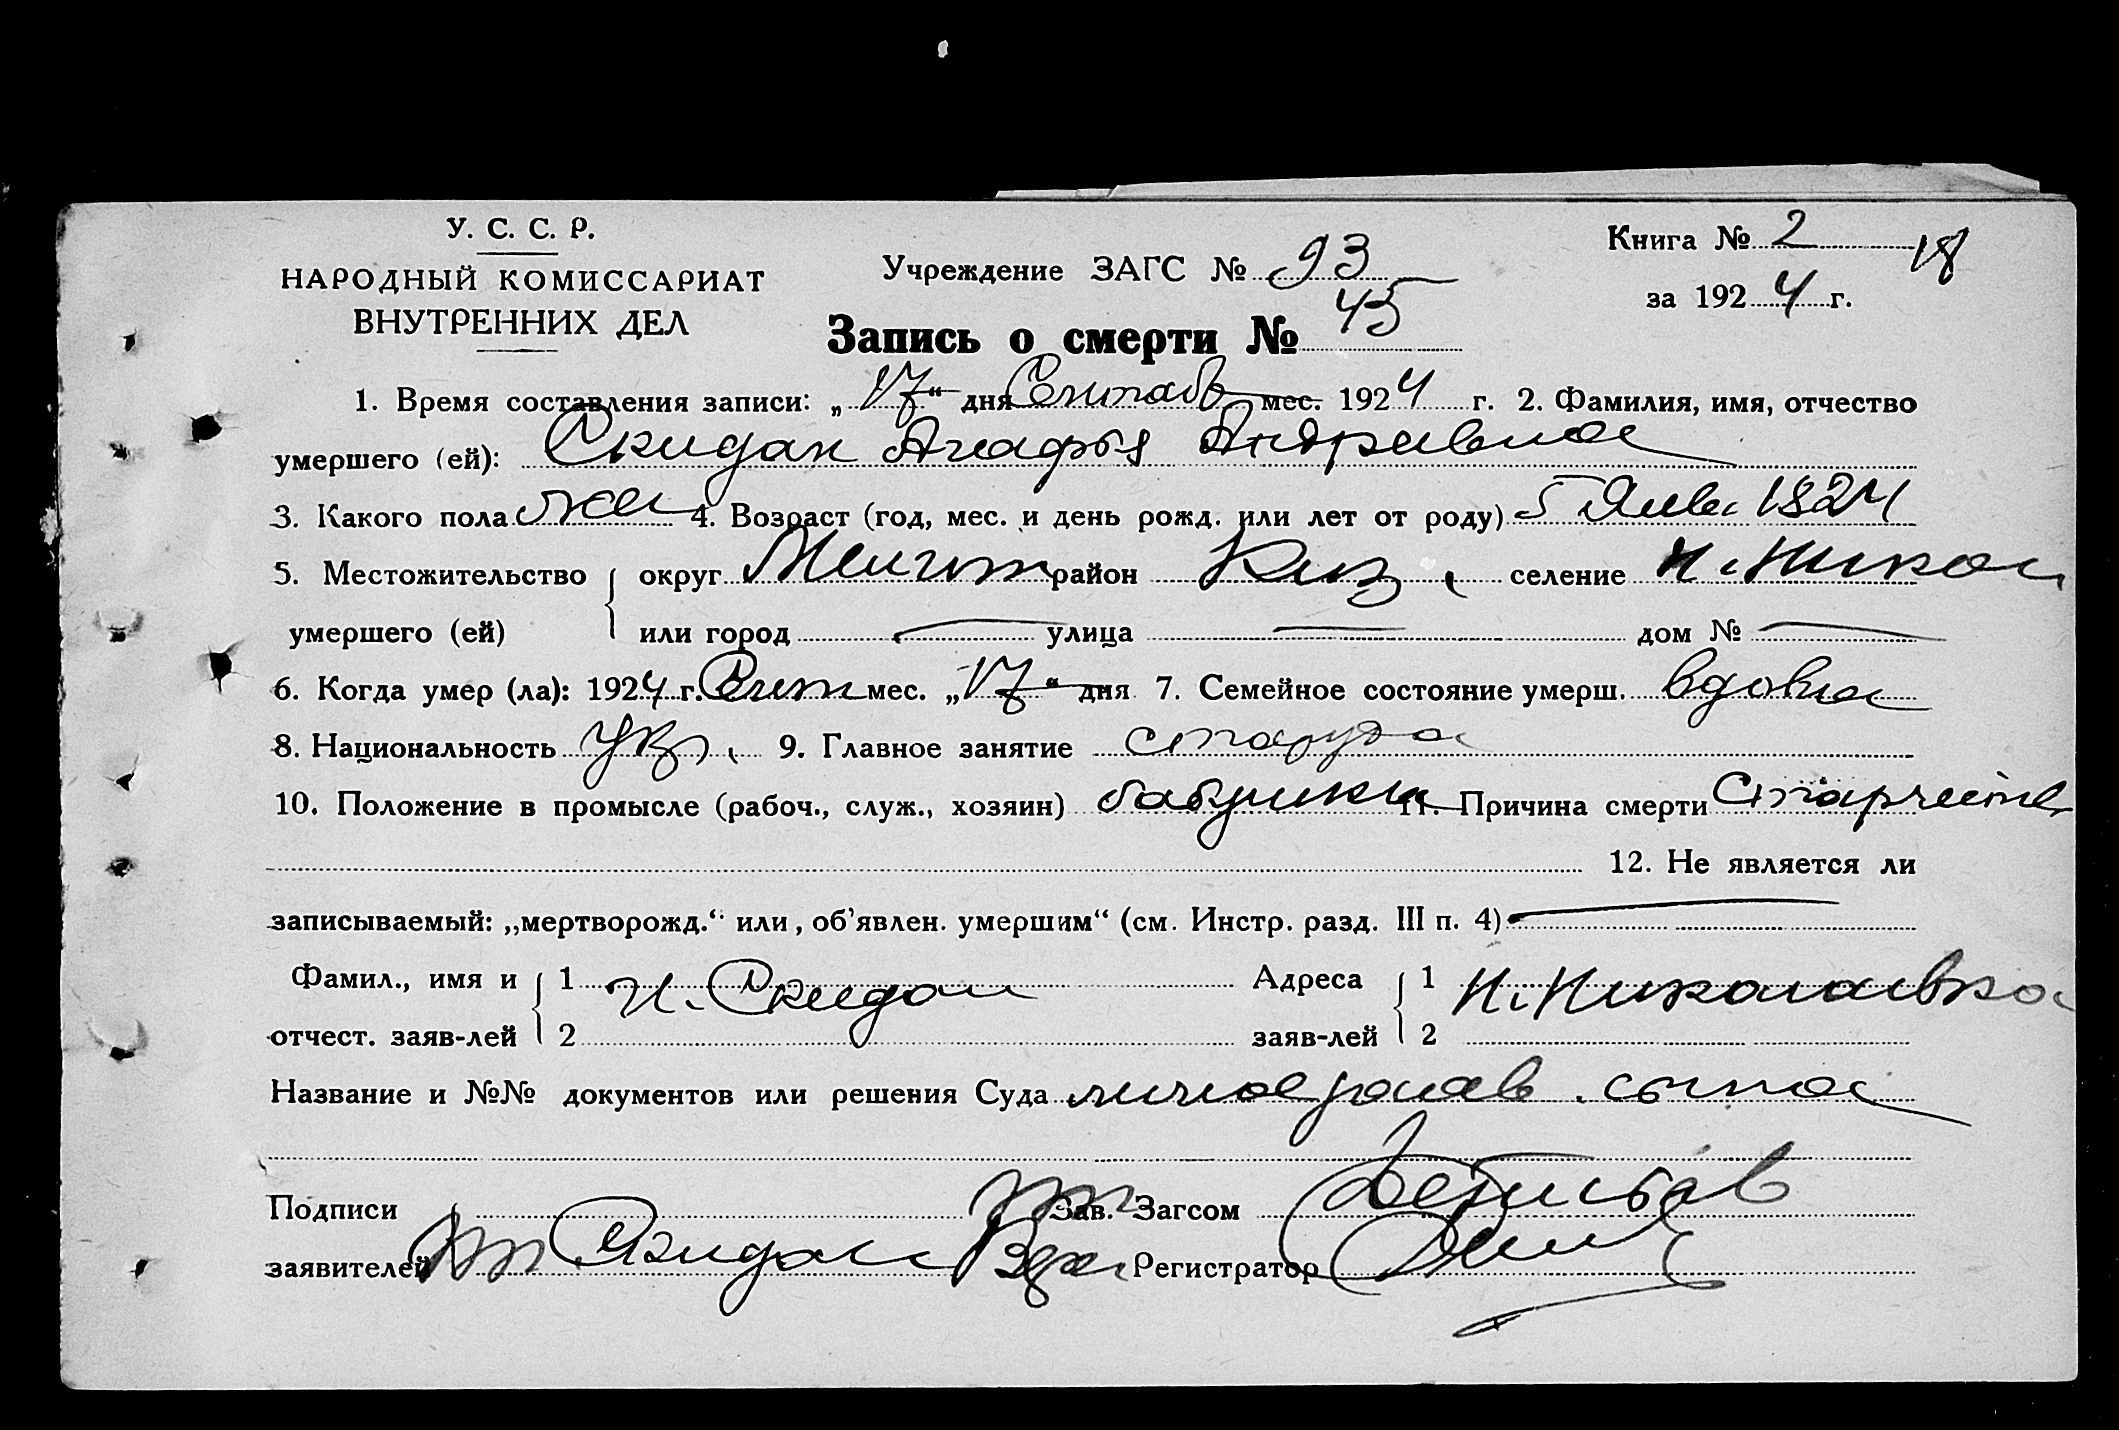 У. С. С. Р.
НАРОДНЫЙ КОМИССАРИАТ
ВНУТРЕННИХ ДЕЛ
Учреждение ЗАГС № 93
Книга № 2 18
за 1924 г.
Запись о смерти № 45
1. Время составления записи: „17“ дня Сентяб мес. 1924 г. 2. Фамилия, имя, отчество
умершего (ей): Скидан Агафья Андреевна
3. Какого пола жен 4. Возраст (год, мес. и день рожд. или лет от роду) 5 Янв. 1824
5. Местожительство умершего (ей) { округ район селение Н. Никол
или город — улица — дом № —
6. Когда умер (ла): 1924 г. Сент мес. „17“ дня 7. Семейное состояние умерш. вдова
8. Национальность укр. 9. Главное занятие старуха
10. Положение в промысле (рабоч., служ., хозяин) 11. Причина смерти
12. Не является ли
записываемый: „мертворожд.“ или, об'явлен. умершим“ (см. Инстр. разд. III п. 4) —
Фамил., имя и отчест. заяв-лей { 1 Н. Скидан Адреса заяв-лей { 1 Н. Николаевка
2 2
Название и №№ документов или решения Суда личное заяв. сына
Подписи Зав. Загсом
заявителей Скидан Регистратор